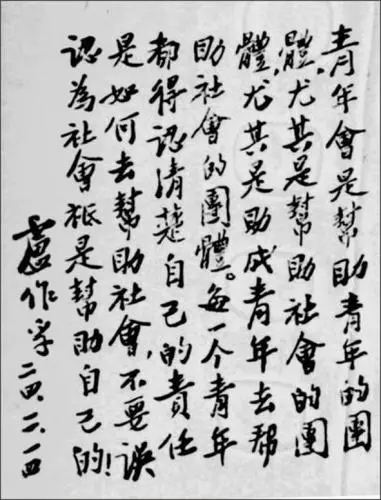 青年會是幫助青年的團
體,尤其是幫助社會的團
體,尤其是助成青年去帮
助社會的團體。每一个青年
都得認清楚自己的責任
是如何去幫助社會,不要誤
認為社會祇是幫助自己的!
盧作孚 二四、二、一四